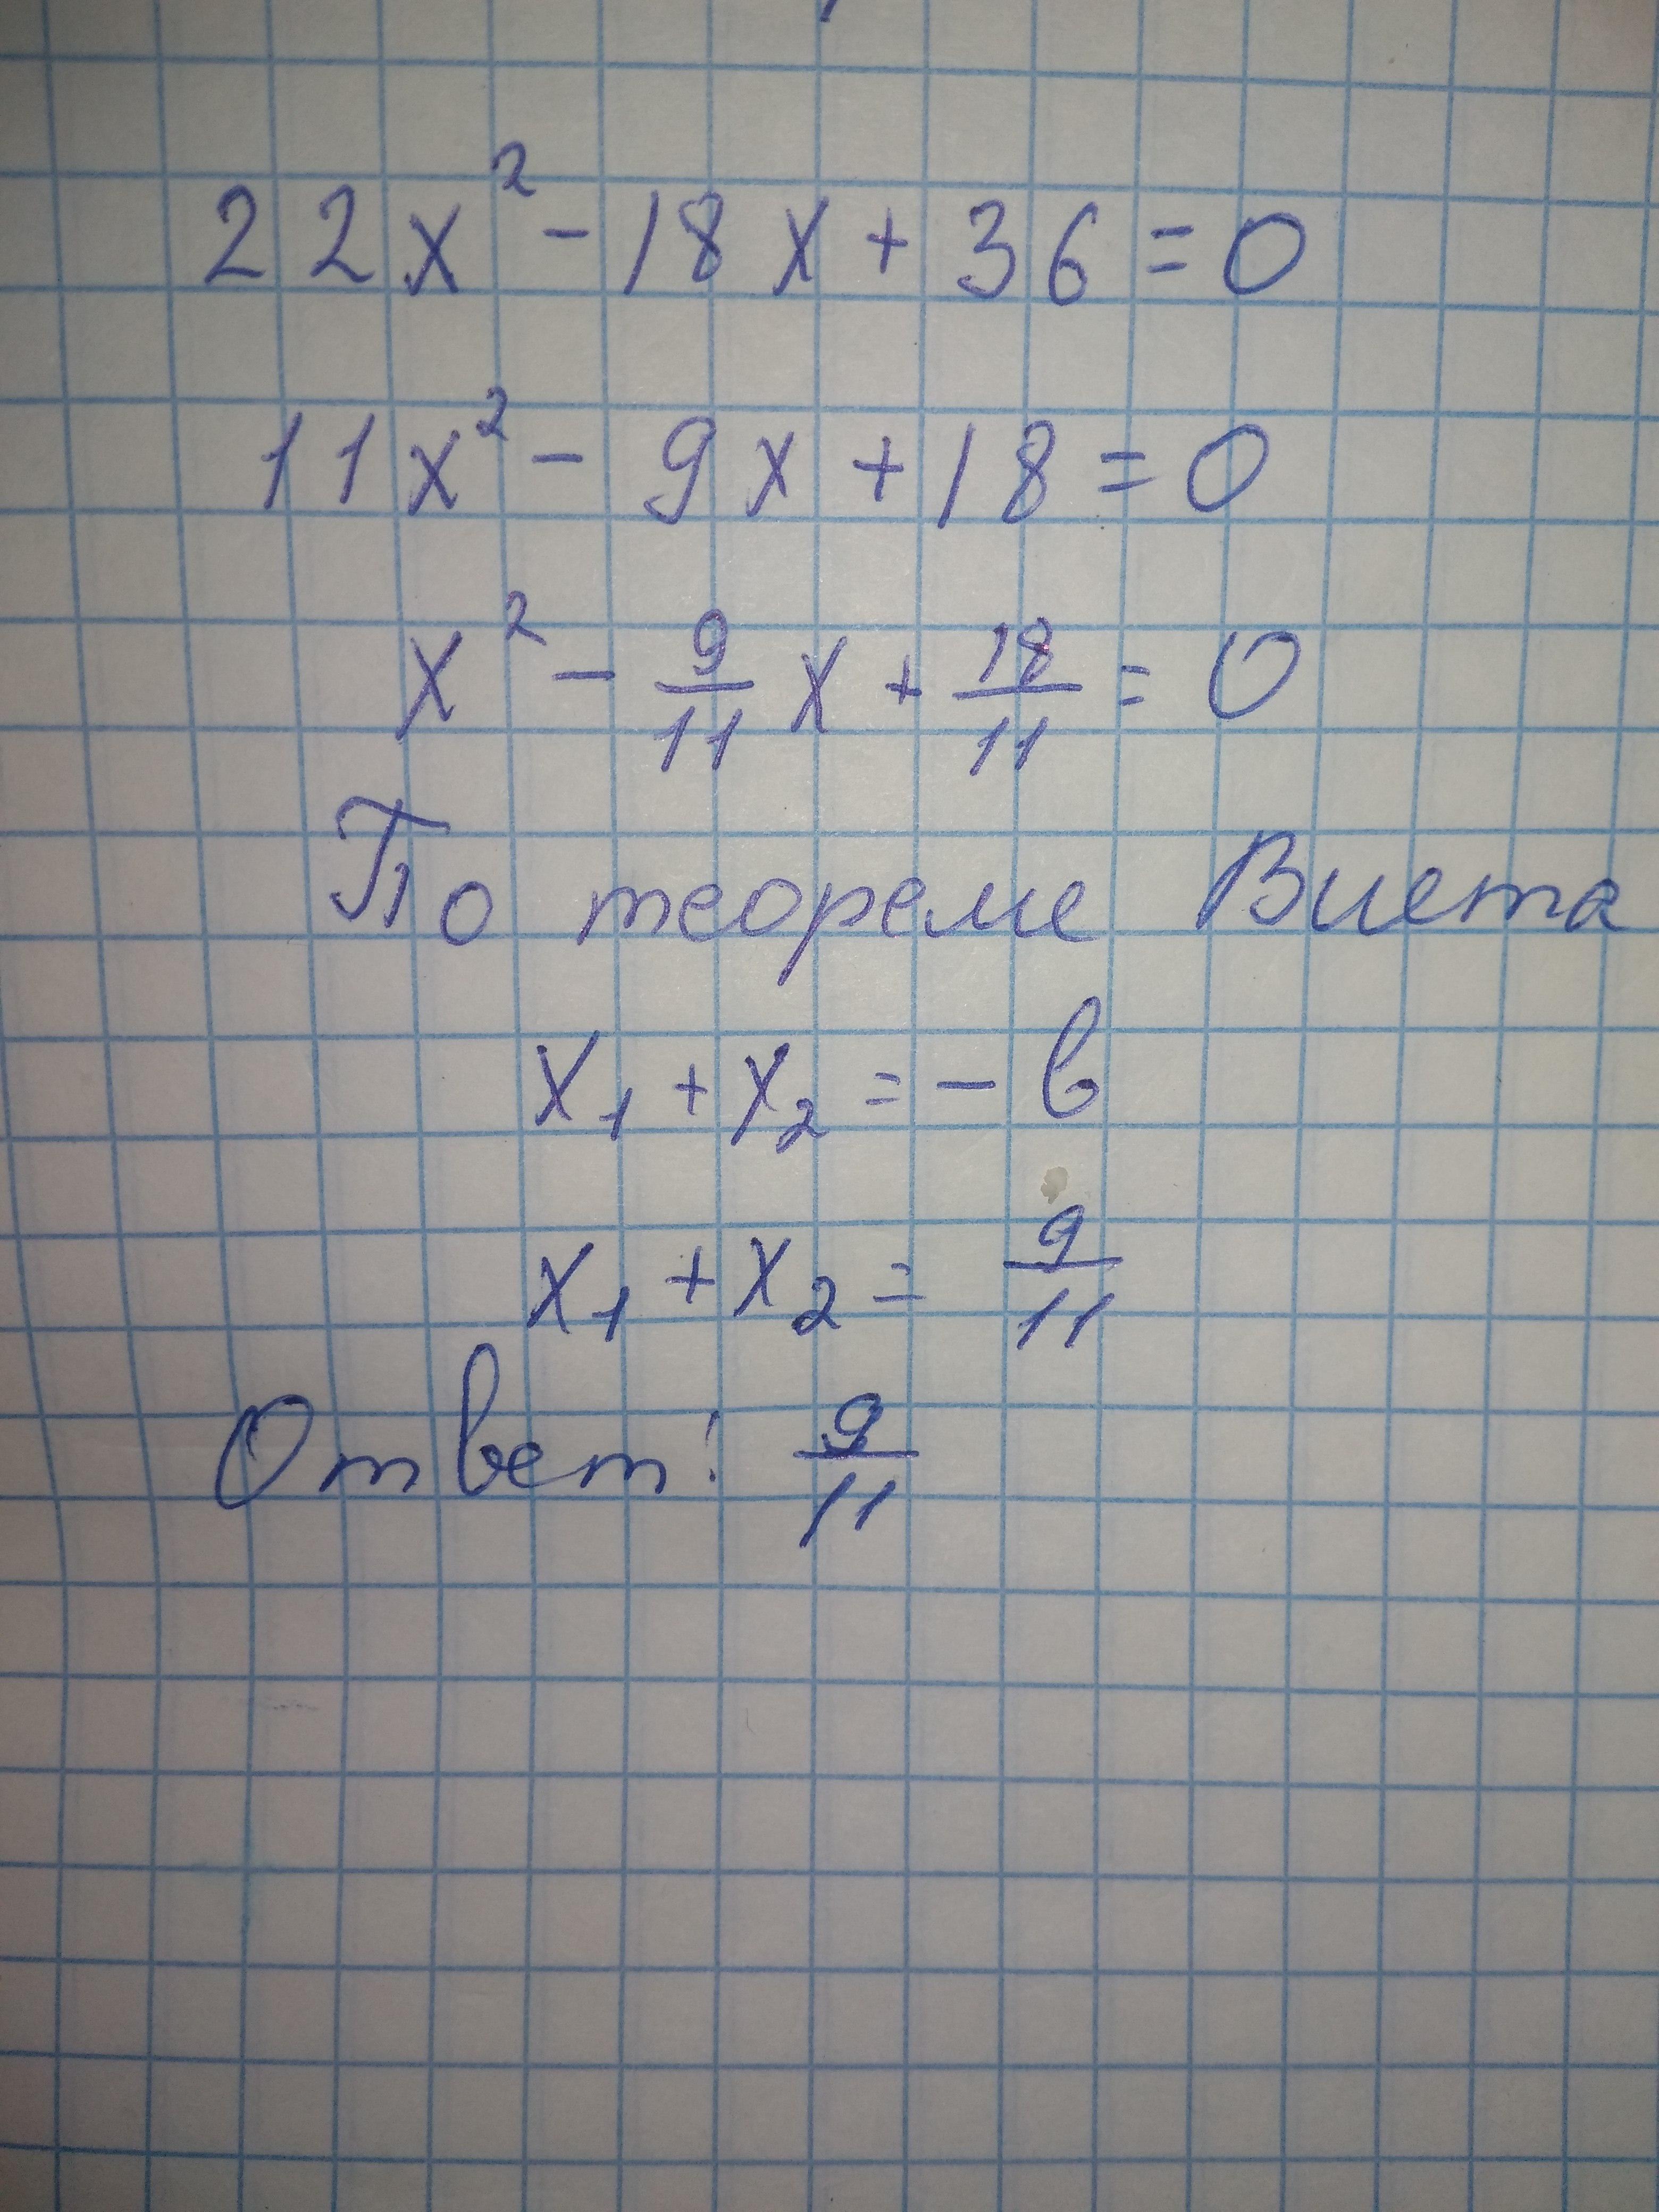 22x² - 18x + 36 = 0
11x² - 9x + 18 = 0
x² - 9/11 x + 18/11 = 0
По теореме Виета
x₁ + x₂ = - в
x₁ + x₂ = 9/11
Ответ: 9/11